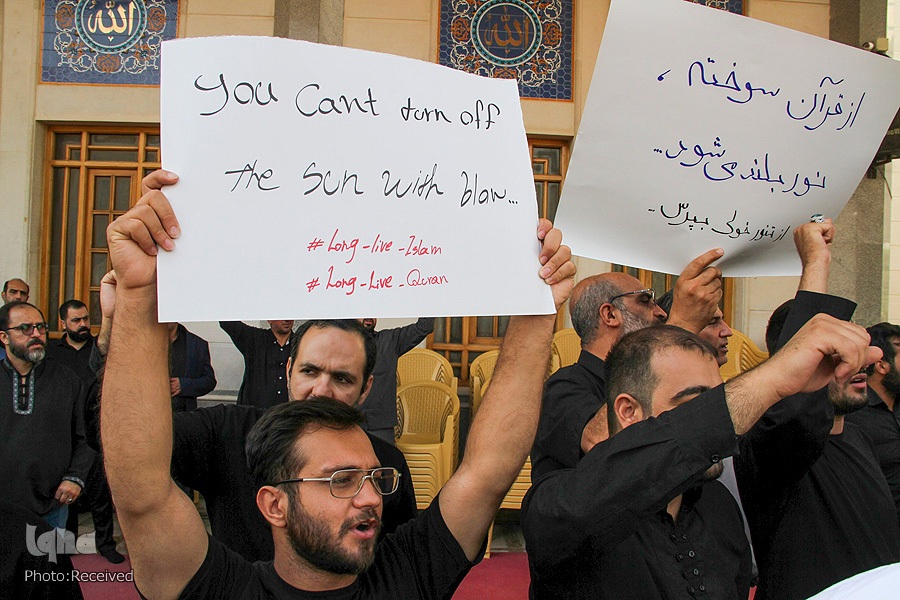 الله
الله
You Can't turn off
the Sun with blow...
#Long-live-Islam
#Long-Live-Quran
از قرآن سوخته،
نور بلندی شود...
از تنور خولی بپرس..
iqna
Photo:Received